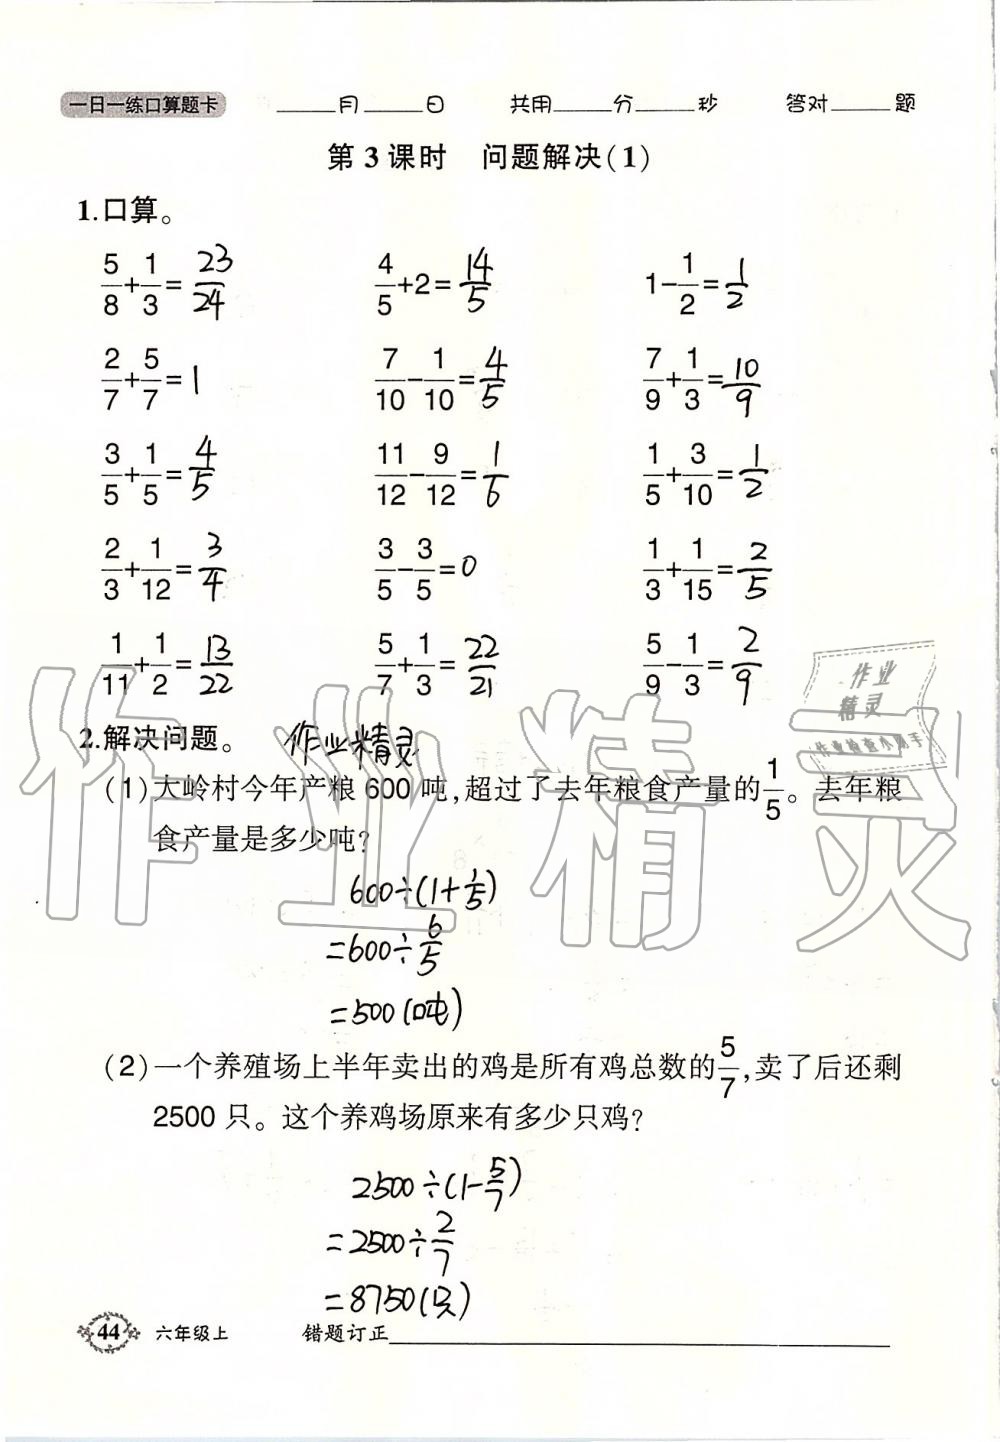 一日一练口算题卡 ____月____日 共用____分____秒 答对____题
第3课时 问题解决(1)
1.口算。
5/8+1/3=23/24 4/5+2=14/5 1-1/2=1/2
2/7+5/7=1 7/10-1/10=4/5 7/9+1/3=10/9
3/5+1/5=4/5 11/12-9/12=1/6 1/5+3/10=1/2
2/3+1/12=3/4 3/5-3/5=0 1/3+1/15=2/5
1/11+1/2=13/22 5/7+1/3=22/21 5/9-1/3=2/9
作业
精灵
作业检查小帮手
2.解决问题。 作业精灵
(1)大岭村今年产粮600吨,超过了去年粮食产量的1/5。去年粮
食产量是多少吨?
作业精灵
600÷(1+1/5)
=600÷6/5
=500(吨)
(2)一个养殖场上半年卖出的鸡是所有鸡总数的5/7,卖了后还剩
2500只。这个养鸡场原来有多少只鸡?
2500÷(1-5/7)
=2500÷2/7
=8750(只)
44 六年级上 错题订正____